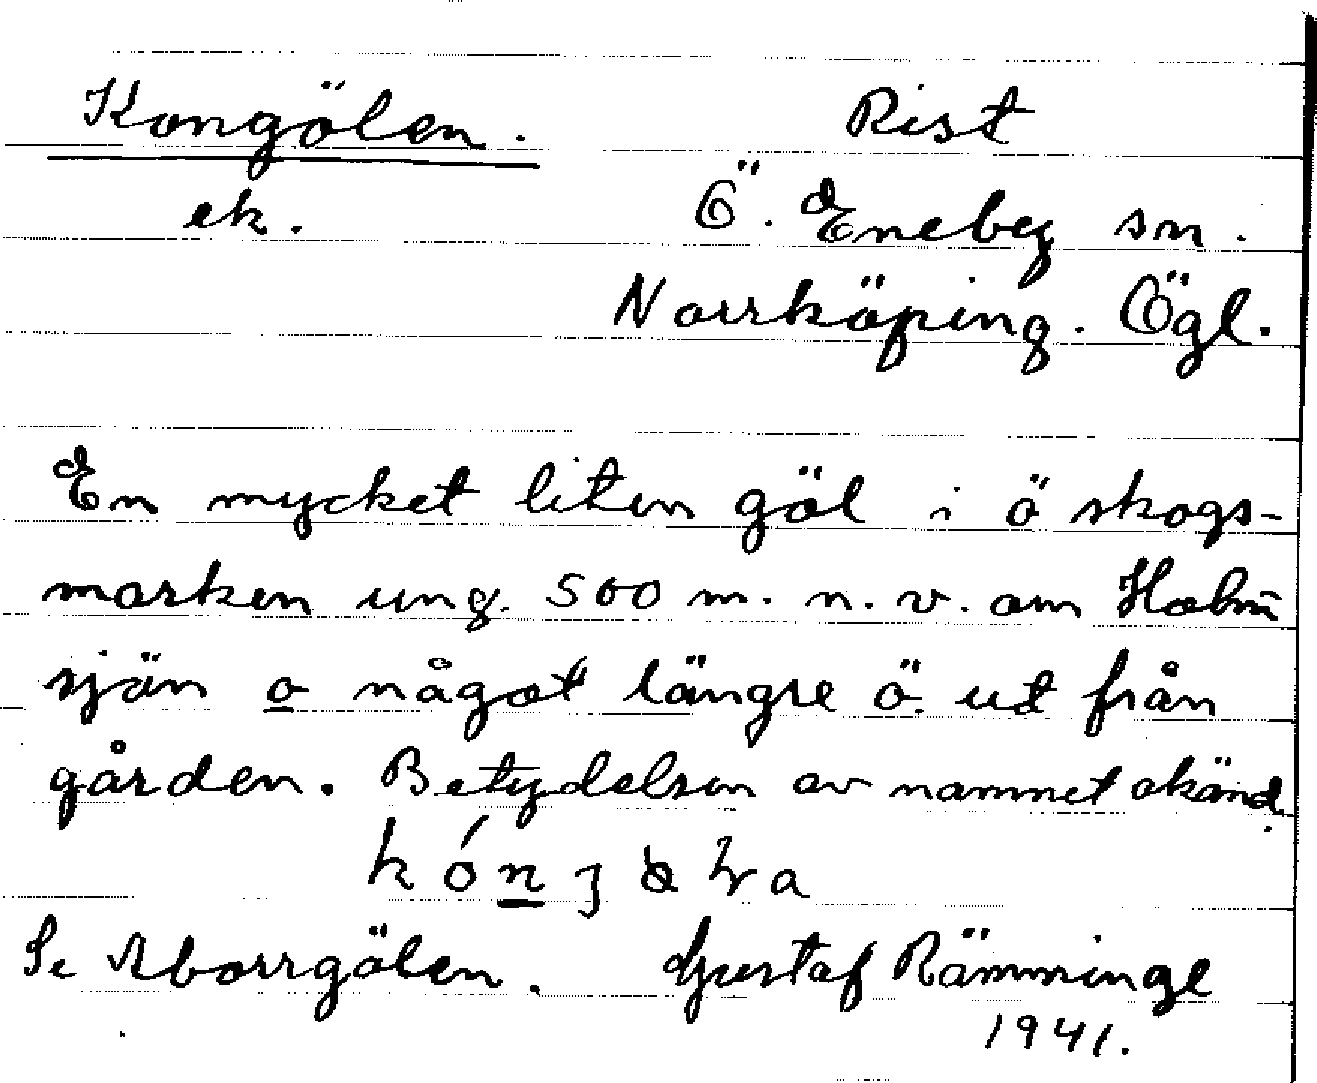 Kongölen. Rist
ek. Ö. Eneby sn.
Norrköping. Ögl.
En mycket liten göl i ö skogs-
marken ung. 500 m. n. v. om Holm
sjön o något längre ö. ut från
gården. Betydelsen av namnet okänd.
Se Aborrgölen. Gustaf Rämminge
1941.